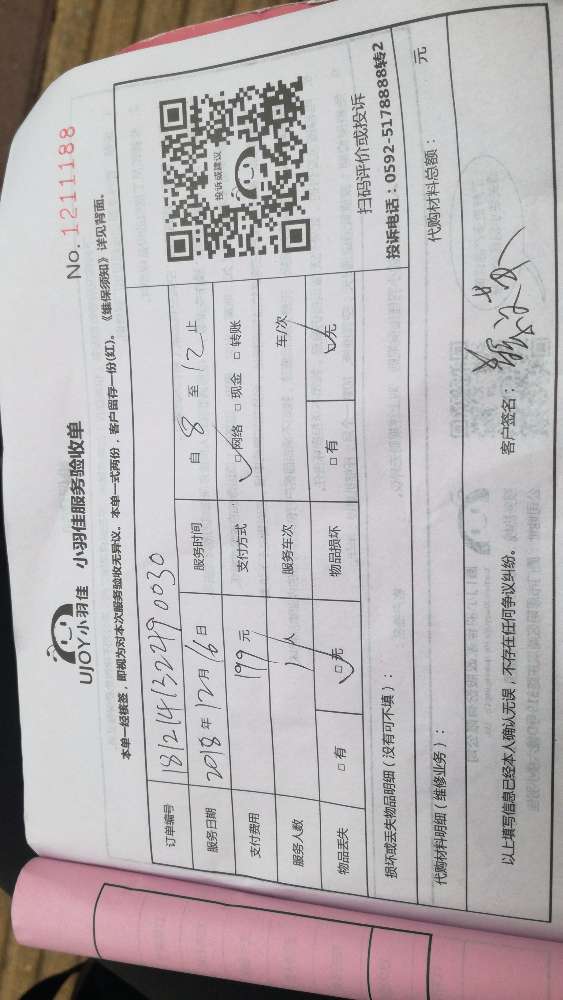 UJOY小羽佳 小羽佳服务验收单
No. 1211188
本单一经核签，即视为对本次服务验收无异议。本单一式两份，客户留存一份(红)。《维保须知》详见背面。
订单编号 181214132490030
服务日期 2018年12月16日 服务时间 自 8 至 12 止
支付费用 199元 支付方式 ☑网络 □现金 □转账
服务人数 1人 服务车次 车/次
物品丢失 □有 ☑无 物品损坏 □有 ☑无
投诉或建议
扫码评价或投诉
投诉电话：0592-5178888转2
损坏或丢失物品明细（没有可不填）：
代购材料明细（维修业务）： 代购材料总额： 元
以上填写信息已经本人确认无误，不存在任何争议纠纷。 客户签名：